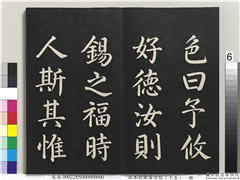 色曰予攸
好德汝則
錫之福時
人斯其惟
6